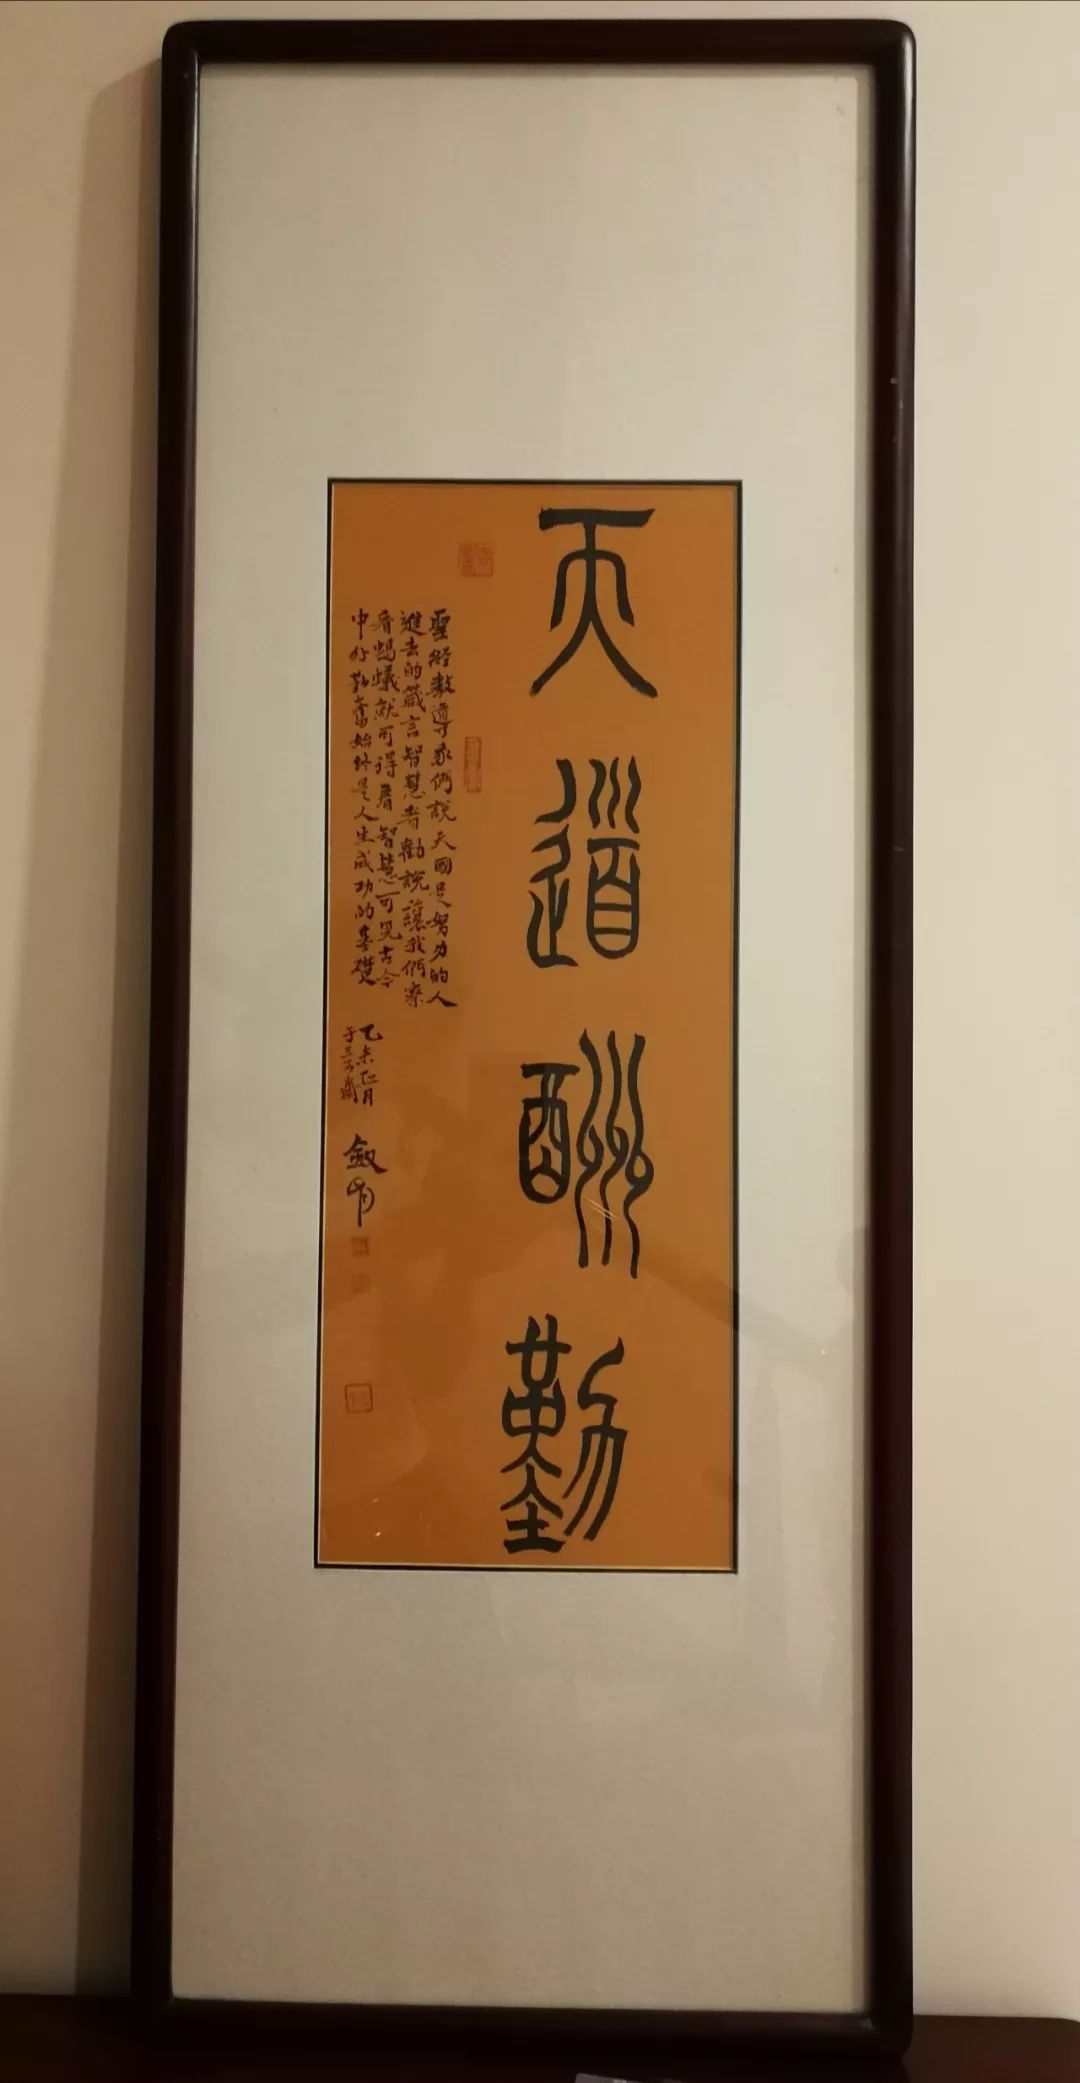 天道酬勤
聖經教導我們說天國是努力的人
進去的箴言智慧者勸說讓我們察
看螞蟻就可得着智慧可見古今
中外勤奮始終是人生成功的基礎
乙未正月
于三不齋